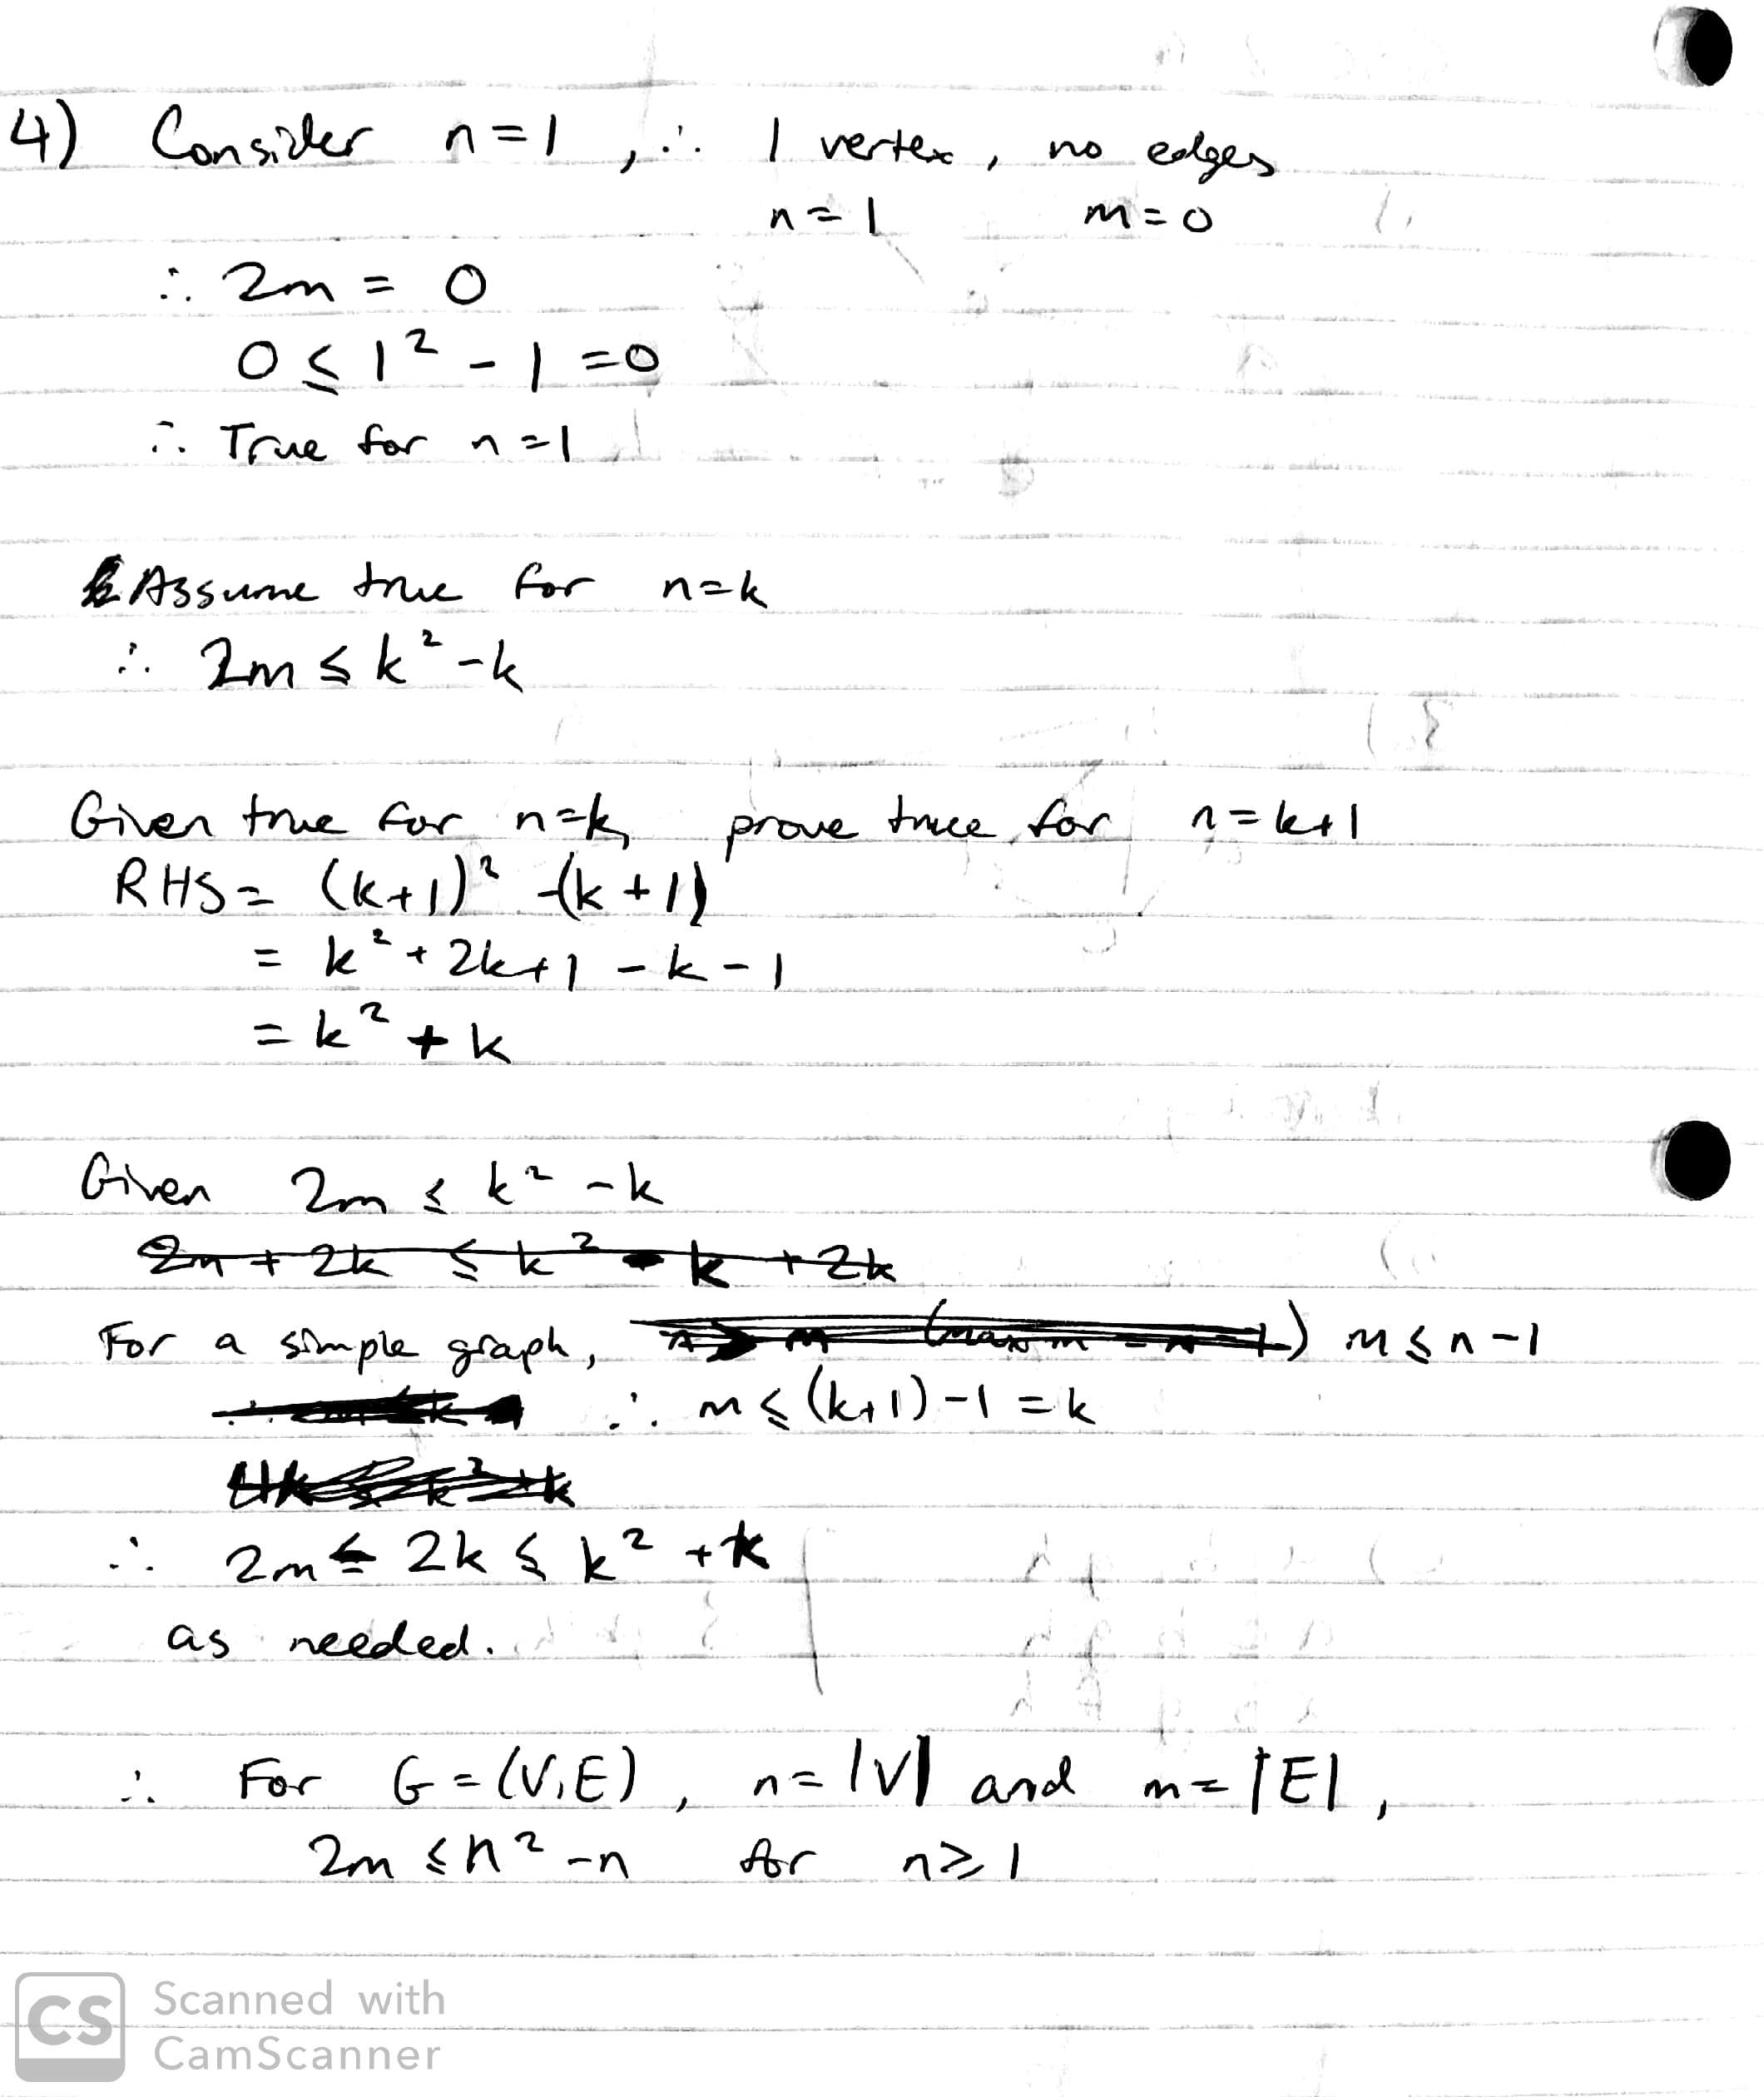 4) Consider n=1, ∴ 1 vertex, no edges
n=1 m=0
∴ 2m = 0
0 ≤ 1² - 1 = 0
∴ True for n=1
Assume true for n=k
∴ 2m ≤ k² - k
Given true for n=k, prove true for n=k+1
RHS = (k+1)² - (k+1)
= k² + 2k+1 - k - 1
= k² + k
Given 2m ≤ k² - k
2m + 2k ≤ k² - k + 2k
For a simple graph, m ≤ n-1
∴ m ≤ (k+1)-1 = k
∴ 2m ≤ 2k ≤ k² + k
as needed.
∴ For G = (V,E), n = |V| and m = |E|,
2m ≤ n² - n for n ≥ 1
CS Scanned with
CamScanner